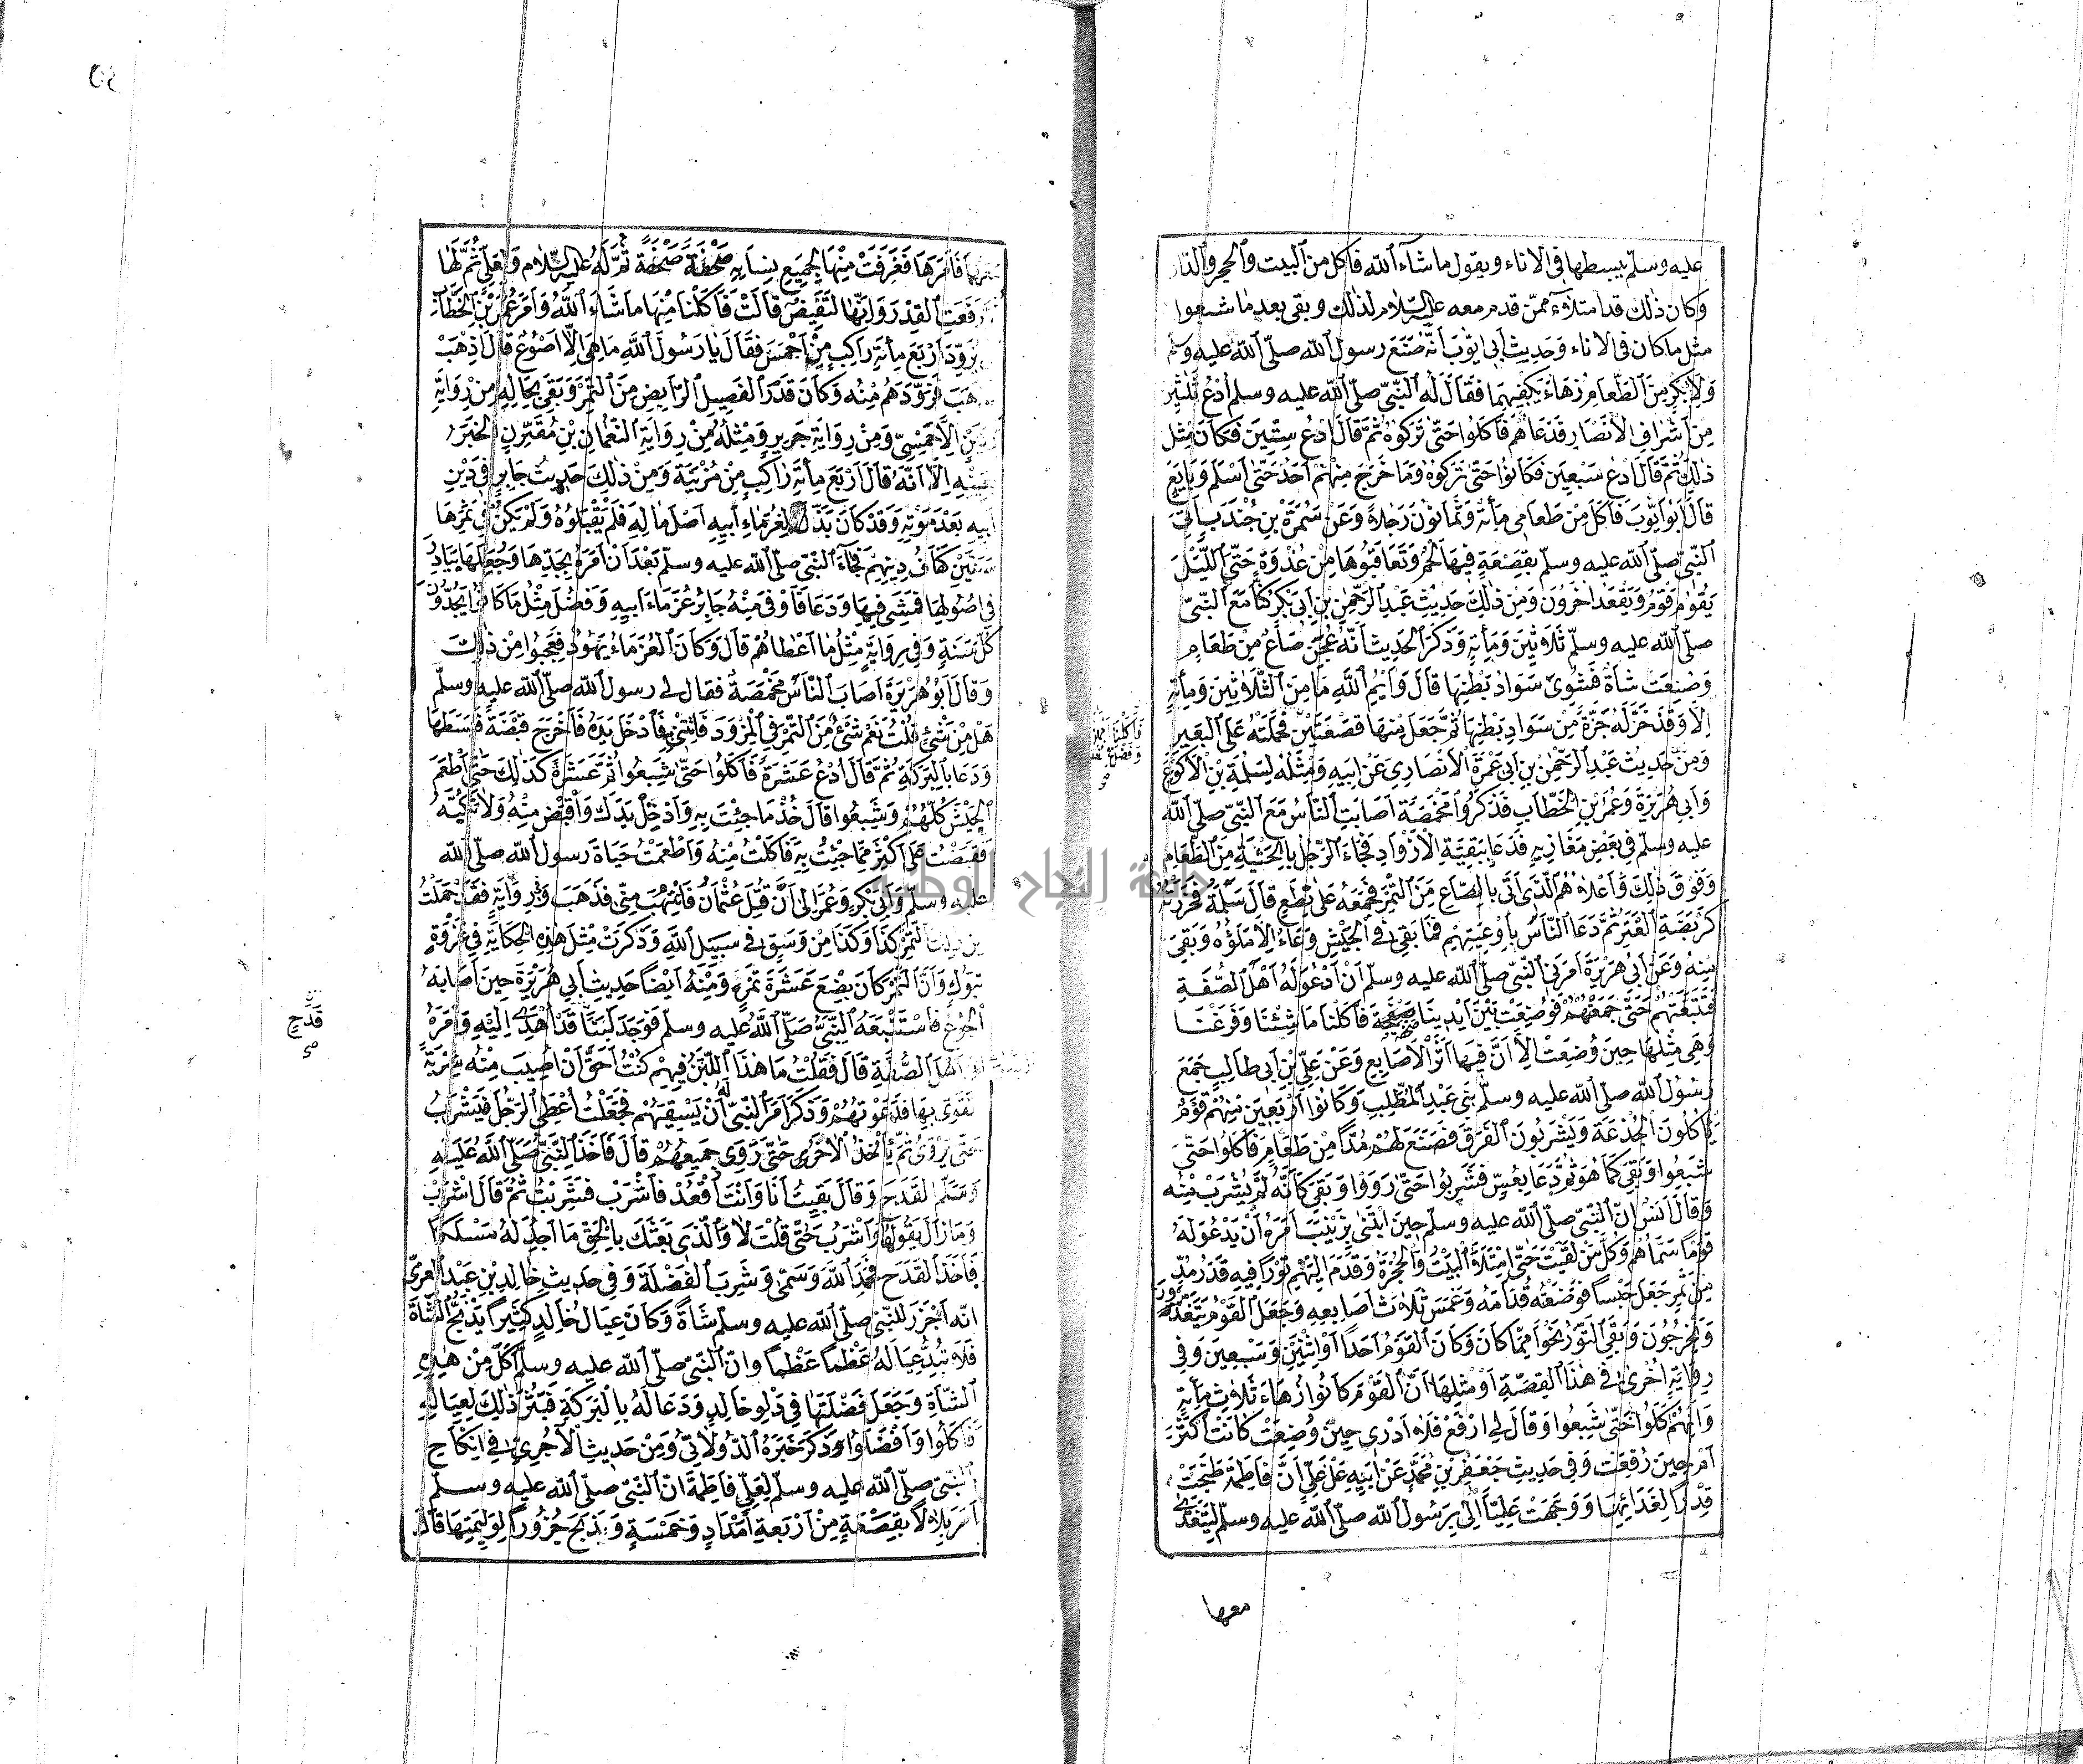 عليه وسلّم يبسطها في الاناء ويقول ما شآء ٱللّه فاكل من ٱلبيت وٱلحجر وٱلدّار
وكان ذلك قد امتلاء ممّن قدم معه عليه السّلام لذلك وبقى بعد ما شبعوا
مثل ما كان في الاناء وحديث ابى ايّوب أنّه صنع رسول ٱللّه صلّى ٱللّه عليه وسلم
ولابى بكر من ٱلطّعام زهاء ما يكفيهما فقال له ٱلنّبىّ صلّى ٱللّه عليه وسلم ادع ثلثين
من اشراف الأنصار فدعاهم فاكلوا حتّى تركوه ثمّ قال ادع ستّين فكان مثل
ذلك ثمّ قال ادع سبعين فكانوا حتّى تركوه وما خرج منهم احد حتّى اسلم وبايع
قال ابو ايّوب فاكل من طعامى مأئة وثمانون رجلا وعن سمرة بن جندب اتى
ٱلنّبىّ صلّى ٱللّه عليه وسلّم بقصعة فيها لحم وتعاقبوها من غدوة حتّى ٱللّيل
يقوم قوم ويقعد اخرون ومن ذلك حديث عبد ٱلرّحمن بن ابى بكر كنّا مع ٱلنّبىّ
صلّى ٱللّه عليه وسلّم ثلاثين ومأئة وذكر الحديث أنّه عجن صاع من طعام
وصنعت شاة فشوى سواد بطنها قال وايم ٱللّه ما من ٱلثّلاثين ومأئة
الا وقد حزّ له حزّة من سواد بطنها ثمّ جعل منها قصعتين فحملته على ٱلبعير
فاكلنا اجمعون وفضل
ومن حديث عبد ٱلرّحمن بن ابى عمرة الأنصارى عن ابيه ومثله لسلمة بن الأكوع
وابى هريرة وعمر بن الخطّاب فذكروا مخمصة اصابت ٱلنّاس مع ٱلنّبىّ صلّى ٱللّه
عليه وسلّم في بعض مغازيه فدعا ببقيّة الأزواد فجاء ٱلرّجل بالحثية من ٱلطّعام
وفوق ذلك واعلاهم ٱلّذى اتى بالصّاع من ٱلتّمر فجمعه على نطع قال سلمة فحزرته
كربضة ٱلعنز ثمّ دعا ٱلنّاس باوعيتهم فما بقى في ٱلجيش وعاء الا ملؤه وبقى
منه وعن ابى هريرة امرنى ٱلنّبىّ صلّى ٱللّه عليه وسلّم ان ادعو له اهل ٱلصّفة
فتتبّعتهم حتّى جمعتهم فوضعت بين ايدينا صحفة فاكلنا ما شئنا وفرغنا
وهى مثلها حين وضعت الا انّ فيها اثر الأصابع وعن علىّ بن ابى طالب جمع
رسول ٱللّه صلّى ٱللّه عليه وسلّم بنى عبد ٱلمطّلب وكانوا اربعين منهم قوم
ياكلون ٱلجذعة ويشربون ٱلفرق فصنع لهم مدّا من طعام فاكلوا حتّى
شبعوا وبقى كما هو ثمّ دعا بعسّ فشربوا حتّى رووا وبقى كانّه لم يشرب منه
وقال انس انّ ٱلنّبىّ صلّى ٱللّه عليه وسلّم حين ابتنى بزينب امره ان يدعو له
قوما سمّاهم وكلّ من لقيت حتّى امتلأ ٱلبيت وٱلحجرة وقدم اليهم تورا فيه قدر مدّ
من تمر جعل حيسا فوضعه قدّامه وغمس ثلاث اصابعه وجعل ٱلقوم يتغدّون
ويخرجون وبقى ٱلتّور نحوا ممّا كان وكان ٱلقوم احدا او اثنين وسبعين وفى
رواية اخرى في هذه ٱلقصّة او مثلها انّ ٱلقوم كانوا زهاء ثلاث مأئة
وانّهم كلوا حتّى شبعوا وقال لى ارفع فلا ادرى حين وضعت كانت اكثر
ام حين رفعت وفى حديث جعفر بن محمّد عن ابيه عن علىّ انّ فاطمة طبخت
قدرا لغدائها ووجّهت عليّا الى رسول ٱللّه صلّى ٱللّه عليه وسلّم ليتغدّى
معها
معهما فامرها فغرفت منها لجميع نسايه صحفة صحفة ثمّ له عليه السّلام ولعلىّ ثمّ لها
ثمّ رفعت ٱلقدر وانّها لتفيض قالت فاكلنا منها ما شاء ٱللّه وامر عمر بن الخطّاب
ان يزوّد اربع مأئة راكب من احمس فقال يا رسول ٱللّه ما هى الّا اصوع قال اذهب
فذهب فزوّدهم منه وكان قدر ٱلفصيل ٱلرّابض من ٱلتّمر وبقى بحاله من رواية
دكين الأحمسىّ ومن رواية جرير ومثله من رواية ٱلنّعمان بن مقرّن الخبر
بعينه الا انّه قال اربع مأئة راكب من مزينة ومن ذلك حديث جابر في دين
ابيه بعد موته وقد كان بذل لغرماء ابيه اصل ماله فلم يقبلوه ولم يكن في ثمرها
سنتين كفاف دينهم فجاء ٱلنّبىّ صلّى ٱللّه عليه وسلّم بعد ان امره بجدّها وجعلها بيادر
في اصولها فمشى فيها ودعا فاوفى منه جابر غرماء ابيه وفضل مثل ما كانوا يجدّون
كلّ سنة وفى رواية مثل ما اعطاهم قال وكان ٱلغرماء يهود فعجبوا من ذلك
وقال ابو هريرة اصاب ٱلنّاس مخمصة فقال لى رسول ٱللّه صلّى ٱللّه عليه وسلّم
هل من شئ قلت نعم شئ من ٱلتّمر في ٱلمزود فاتنى به فادخل يده فاخرج قبضة فبسطها
ودعا بالبركة ثمّ قال ادع عشرة فاكلوا حتّى شبعوا ثمّ عشرة كذلك حتّى اطعم
ٱلجيش كلّهم وشبعوا قال خذ ما جئت به وادخل يدك واقبض منه ولا تكبّه
فقبضت على اكثر ممّا جئت به فاكلت منه واطعمت حياة رسول ٱللّه صلّى ٱللّه
عليه وسلّم وابى بكر وعمر الى ان قتل عثمان فانتهب منّى فذهب وفى رواية فقد حملت
من ذلك ٱلتّمر كذا وكذا من وسق في سبيل ٱللّه وذكرت مثل هذه الحكاية في غزوة
تبوك وانّ ٱلتّمر كان بضع عشرة تمرة ومنه ايضا حديث ابى هريرة حين اصابه
ٱلجوع فاستتبعه ٱلنّبىّ صلّى ٱللّه عليه وسلّم فوجد لبنا قد اهدى اليه وامره
قدح
ان يدعو اهل ٱلصّفة قال فقلت ما هذا ٱللّبن فيهم كنت احقّ ان اصيب منه شربة
اتقوّى بها فدعوتهم وذكر امر ٱلنّبىّ له ان يسقيهم فجعلت اعطى ٱلرّجل فيشرب
حتّى يروى ثمّ ياخذ الاخرى حتّى روى جميعهم قال فاخذ ٱلنّبىّ صلّى ٱللّه عليه
وسلّم ٱلقدح وقال بقيت انا وانت اقعد فاشرب فشربت ثمّ قال اشرب
وما زال يقولها واشرب حتّى قلت لا وٱلّذى بعثك بالحقّ ما اجد له مسلكا
فاخذ ٱلقدح فحمد ٱللّه وسمّى وشرب ٱلفضلة وفى حديث خالد بن عبد ٱلعزّى
انّه اجزر للنّبىّ صلّى ٱللّه عليه وسلّم شاة وكان عيال خالد كثيرا يذبح ٱلشّاة
فلا تبدّ عياله عظما عظما وانّ ٱلنّبىّ صلّى ٱللّه عليه وسلّم اكل من هذه
ٱلشّاة وجعل فضلتها في دلو خالد ودعا له بالبركة فنثر ذلك لعياله
فاكلوا وافضلوا وذكر خبره ٱلدّولابىّ ومن حديث الآجرىّ في انكاح
ٱلنّبىّ صلّى ٱللّه عليه وسلّم لعلىّ فاطمة انّ ٱلنّبىّ صلّى ٱللّه عليه وسلّم
امر بلالا بقصعة من اربعة امداد وخمسة وبذبح جزورا لوليمتها قال
جامعة النجاح الوطنية